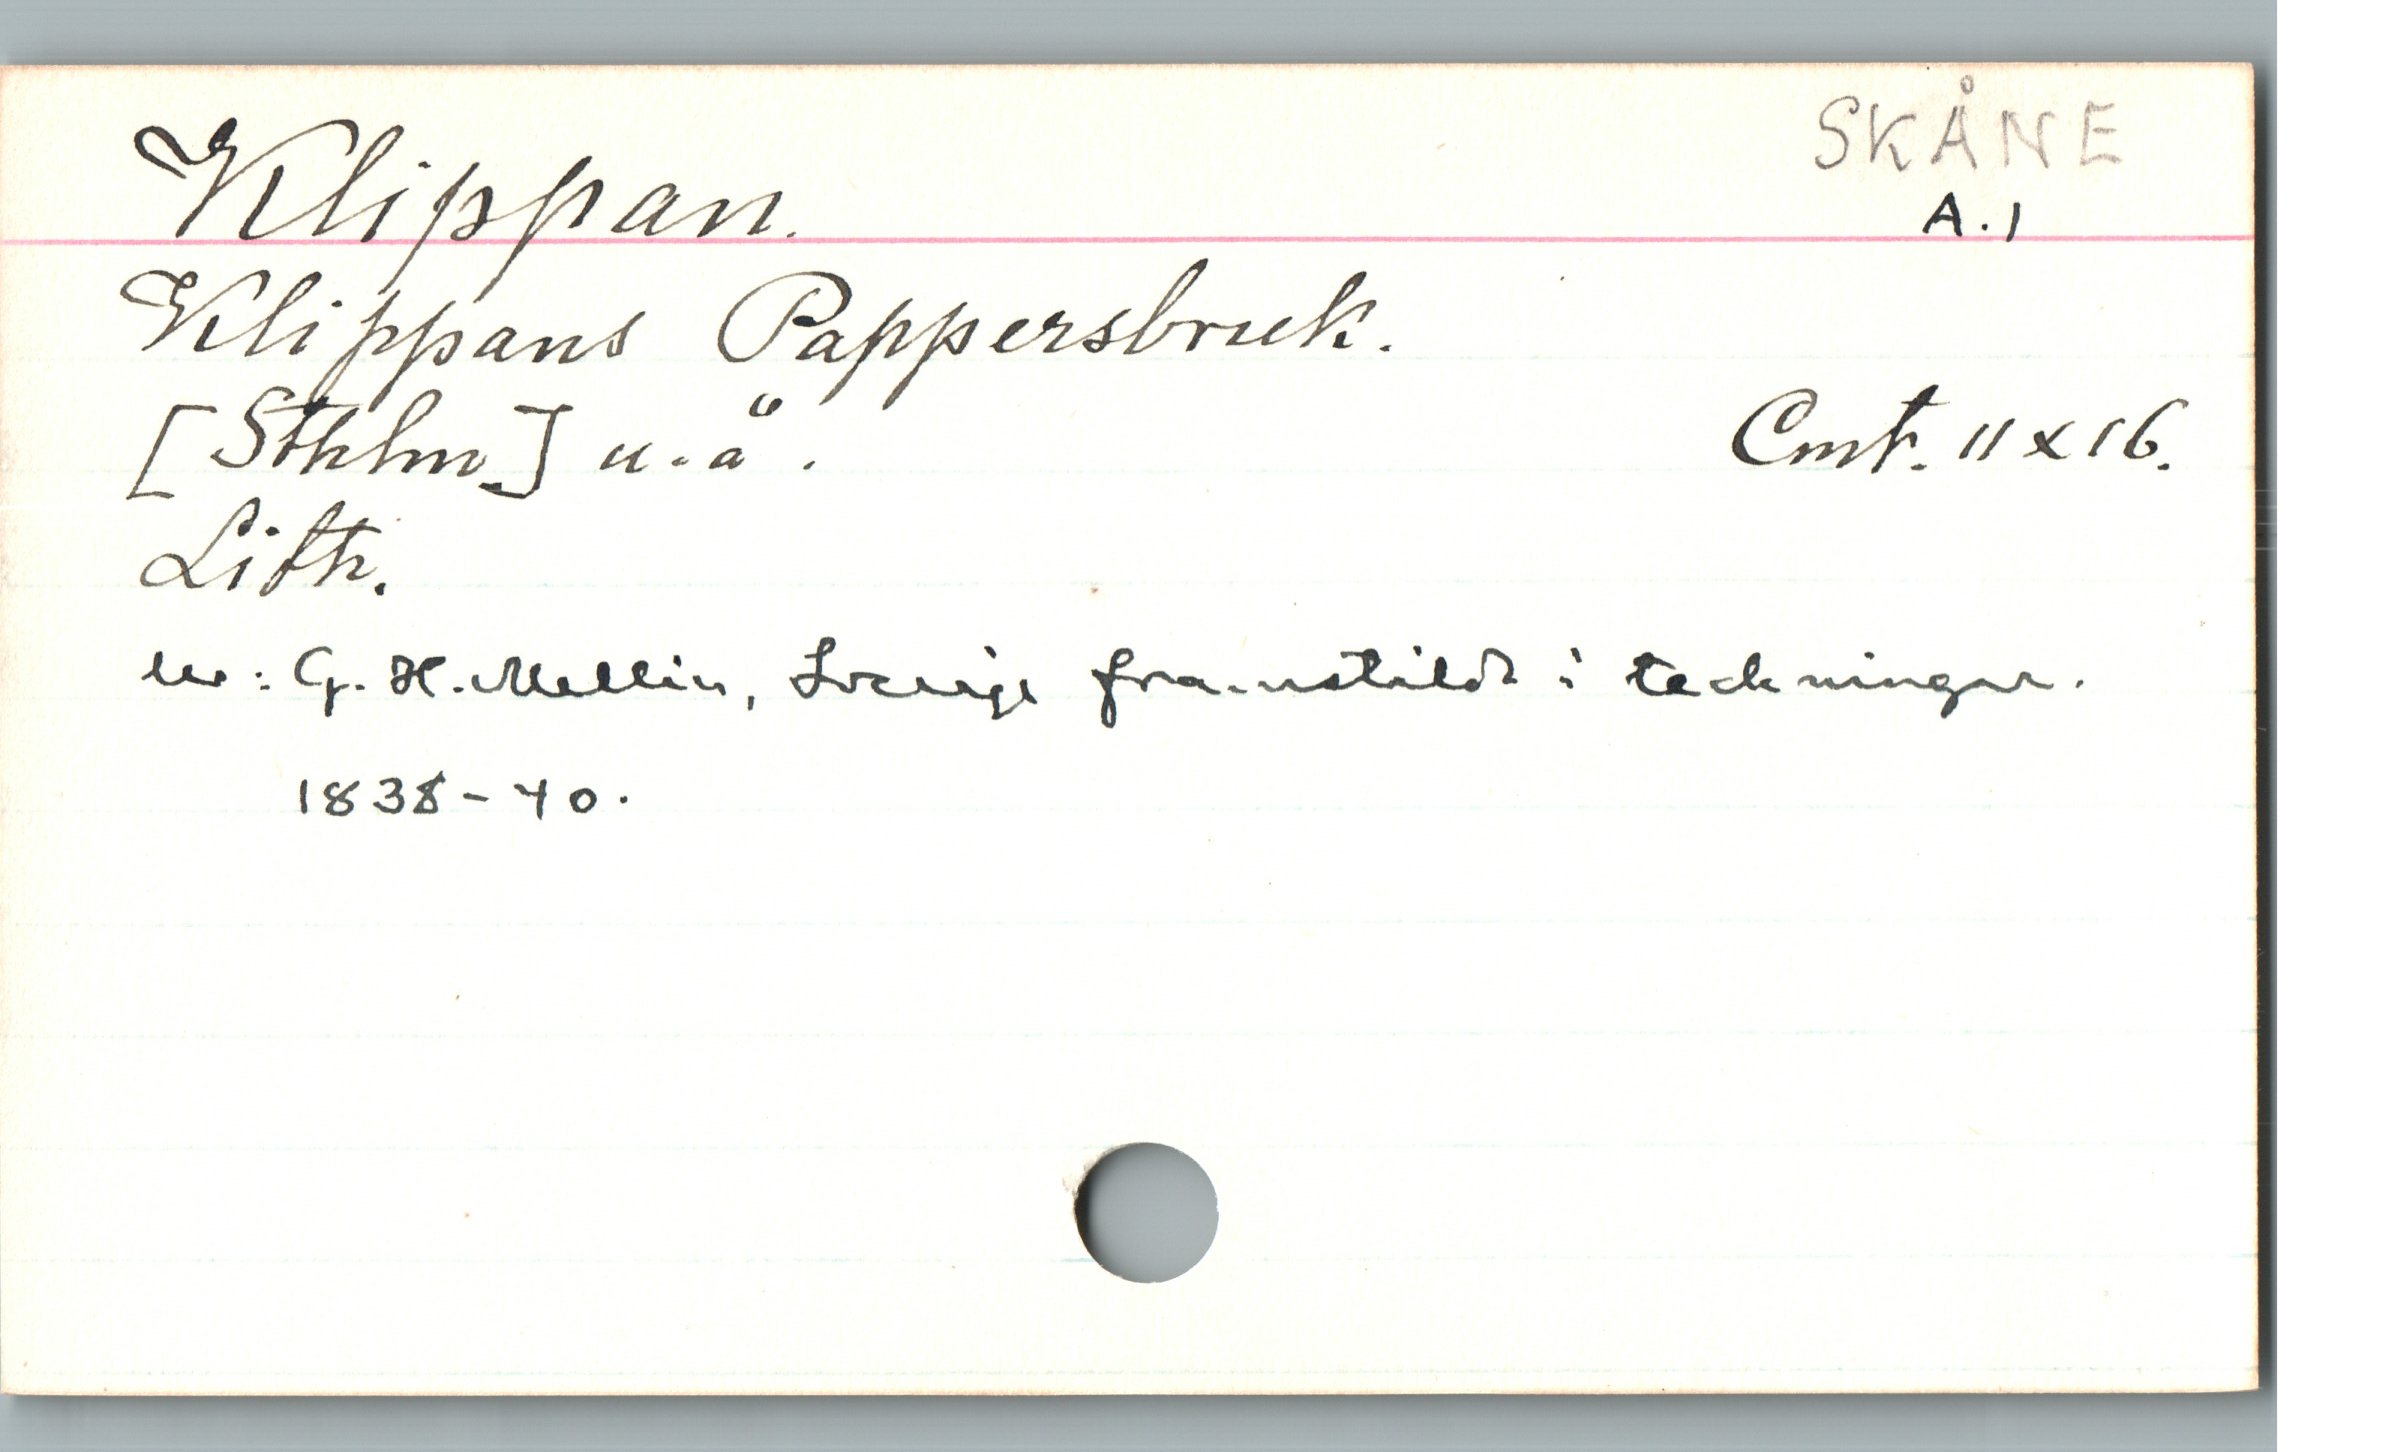 SKÅNE
Klippan.
A.1
Klippans Pappersbruk.
[Sthlm.] u.å. Cmt. 11 x 16.
Lith.
ur: G. H. Mellin, Sverige framstäldt i teckningar.
1838-40.